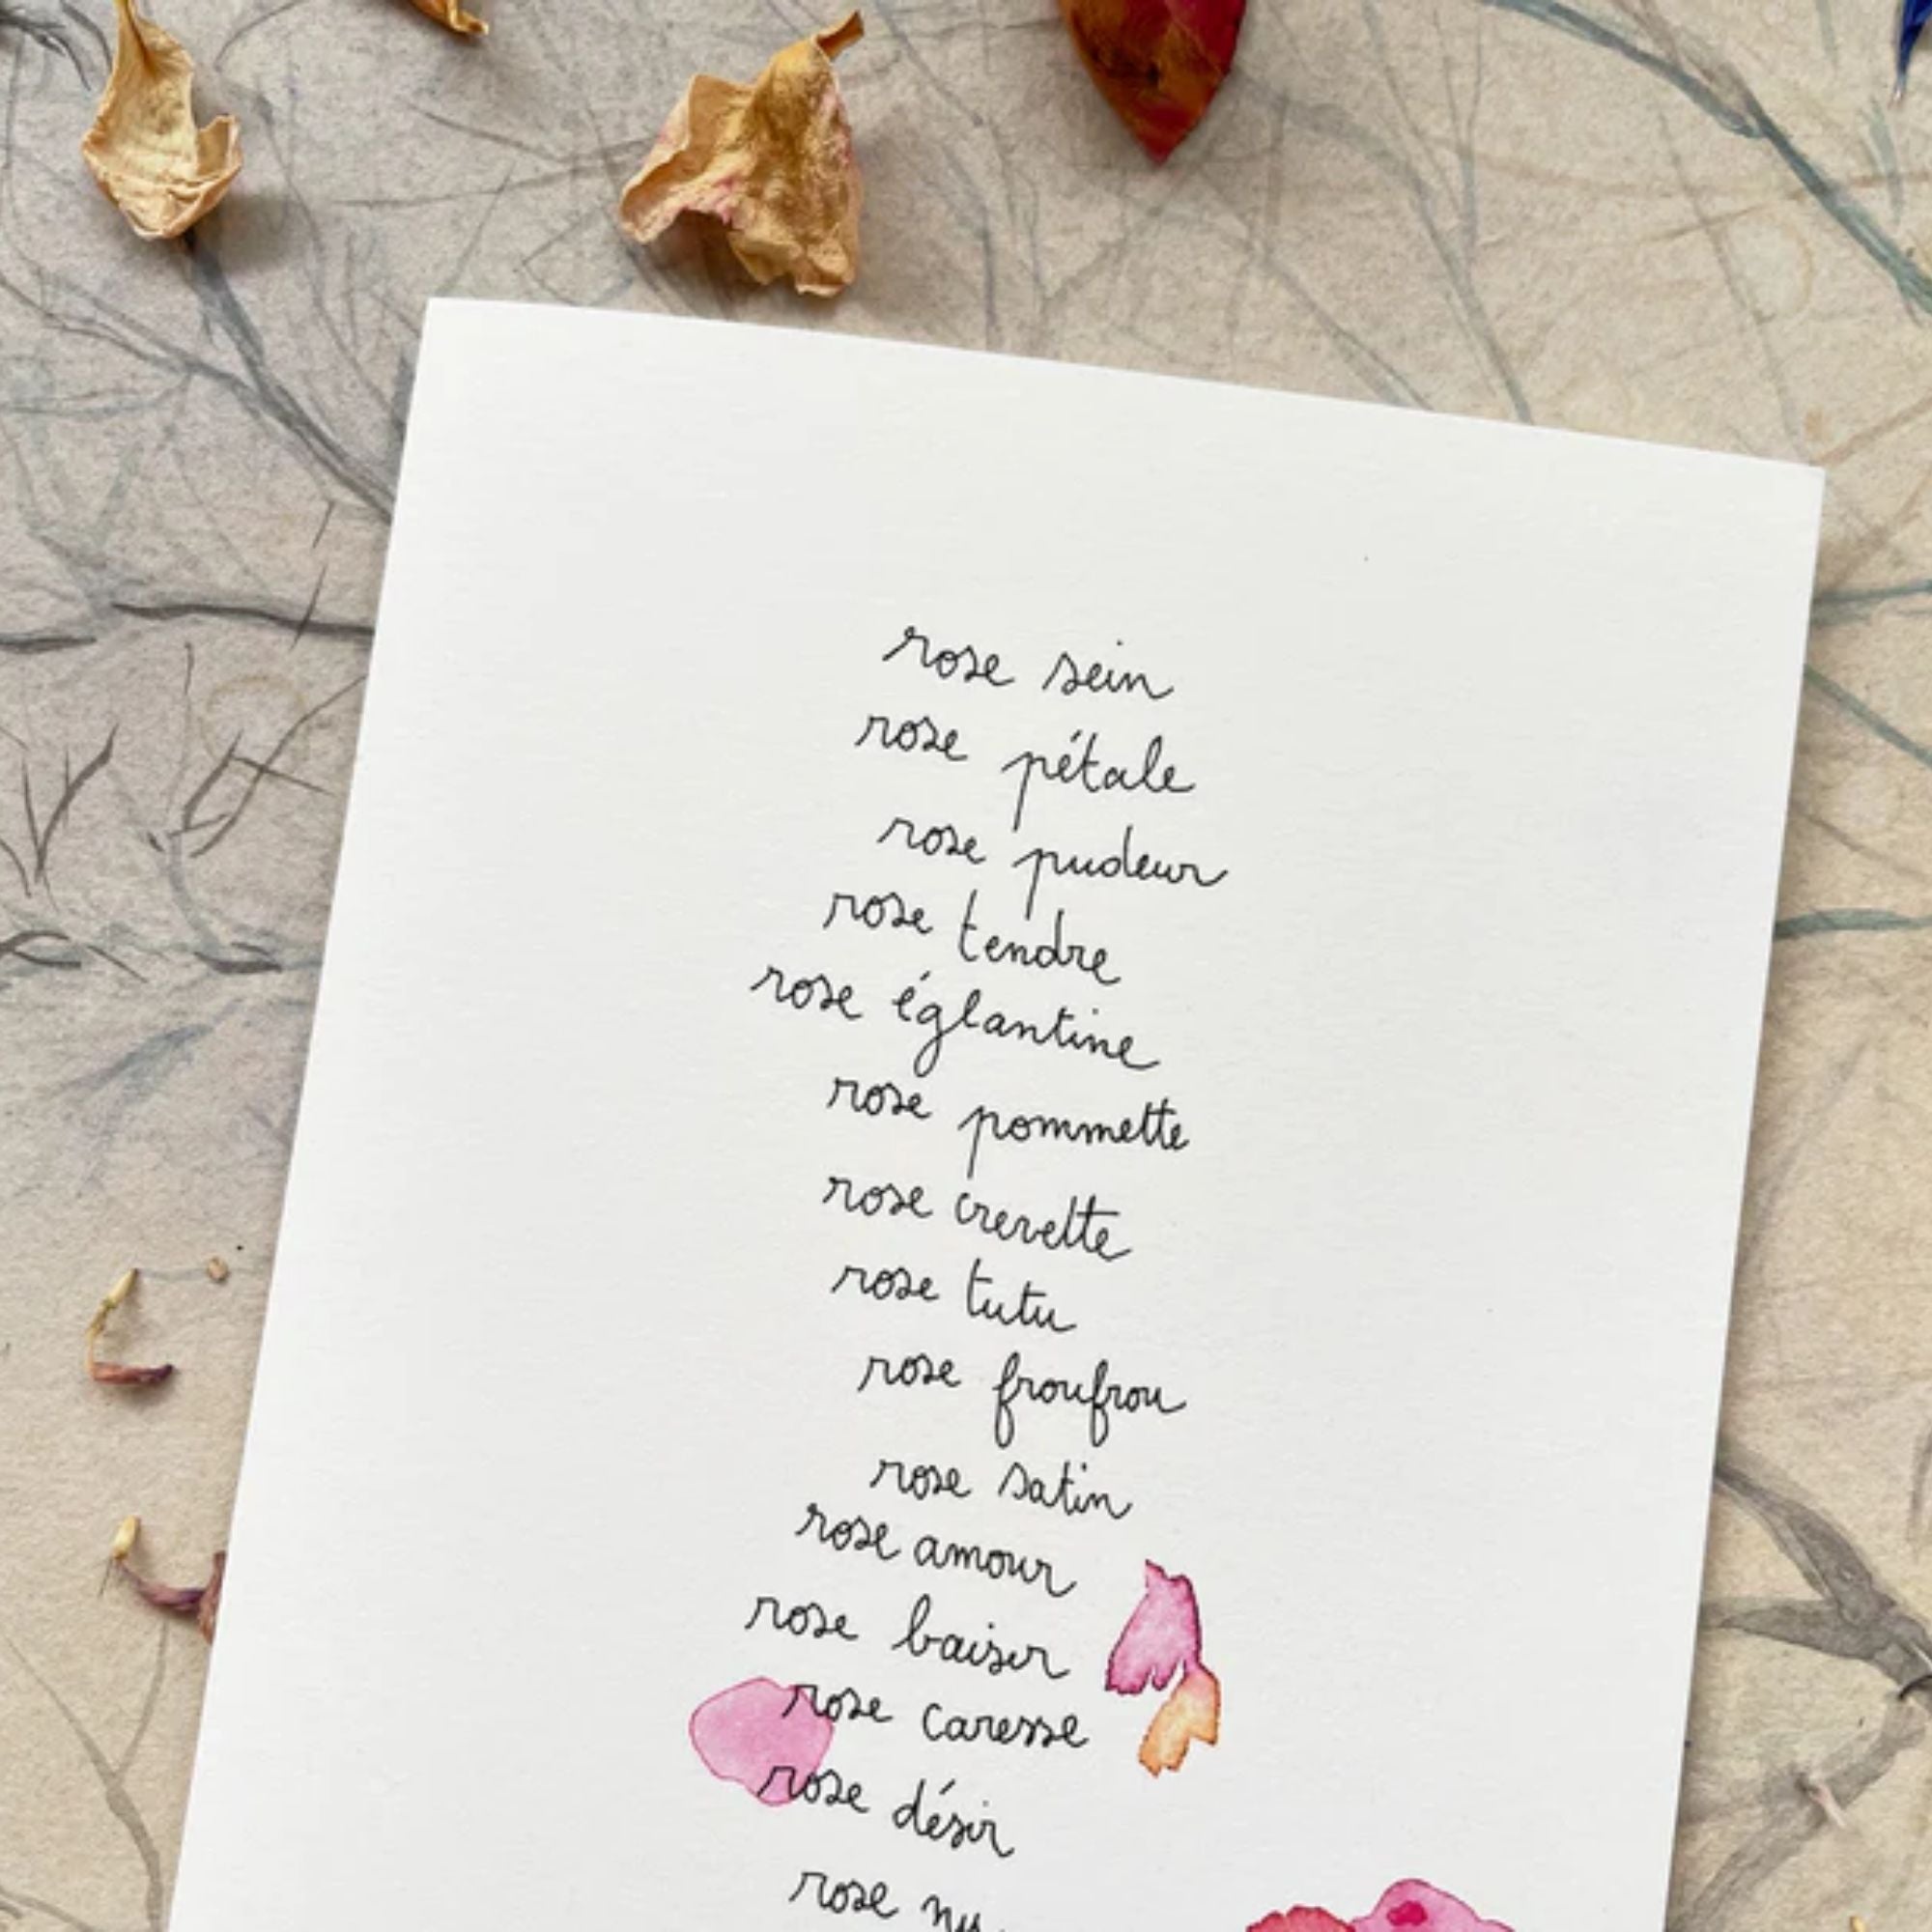 rose sein
rose pétale
rose pudeur
rose tendre
rose églantine
rose pommette
rose crevette
rose tutu
rose froufrou
rose satin
rose amour
rose baiser
rose caresse
rose désir
rose